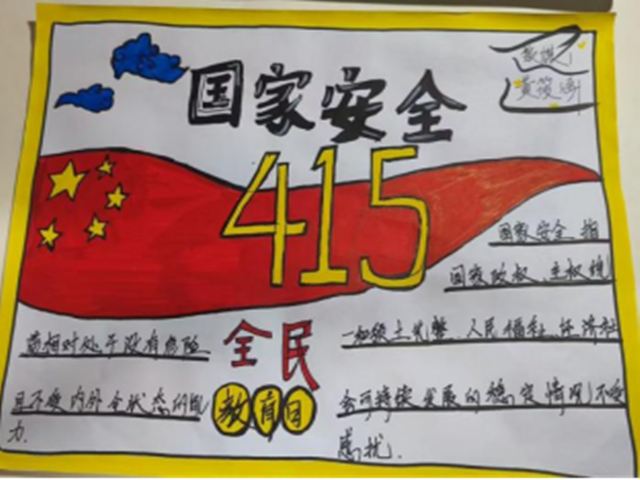 国家安全
415
国家安全指
国家政权、主权统
一和领土完整、人民福祉、经济社
会可持续发展的稳定情况不受
威扰.
相对处于没有危险
且不受内外 状态的能
力.
全民
教育日